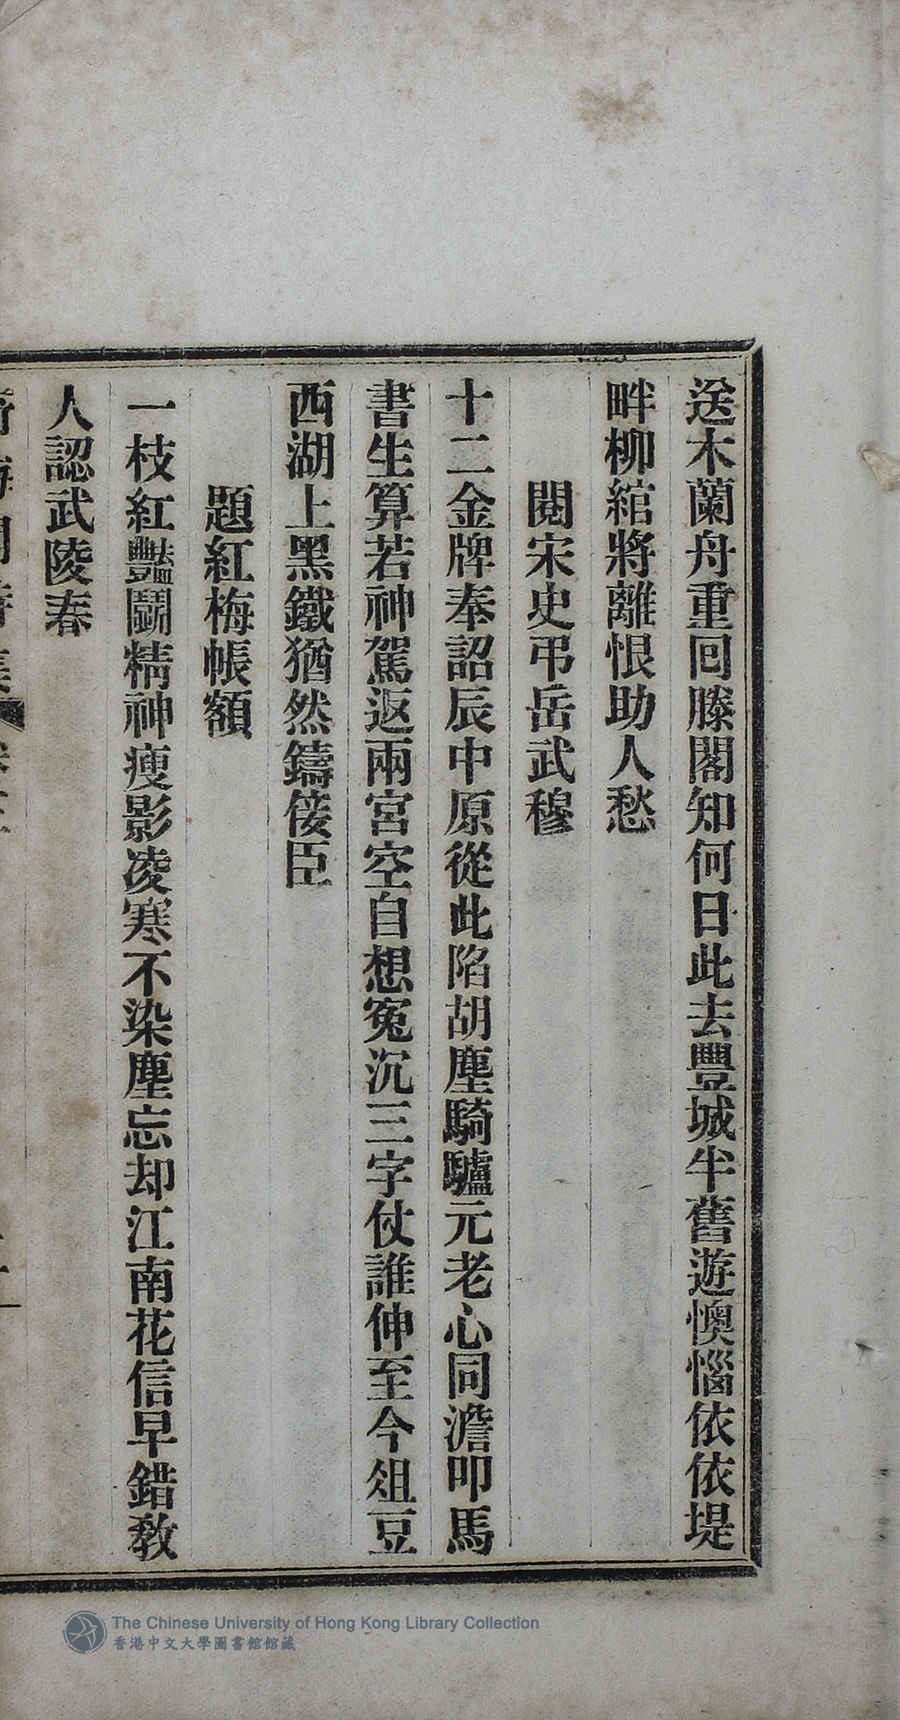 送木蘭舟重回滕閣知何日此去豐城半舊遊懊惱依依堤
畔柳綰將離恨助人愁
閱宋史弔岳武穆
十二金牌奉詔辰中原從此陷胡塵騎驢元老心同澹叩馬
書生算若神駕返兩宮空自想冤沉三字仗誰伸至今俎豆
西湖上黑鐵猶然鑄佞臣
題紅梅帳額
一枝紅豔鬭精神瘦影凌寒不染塵忘却江南花信早錯教
人認武陵春
The Chinese University of Hong Kong Library Collection
香港中文大學圖書館館藏